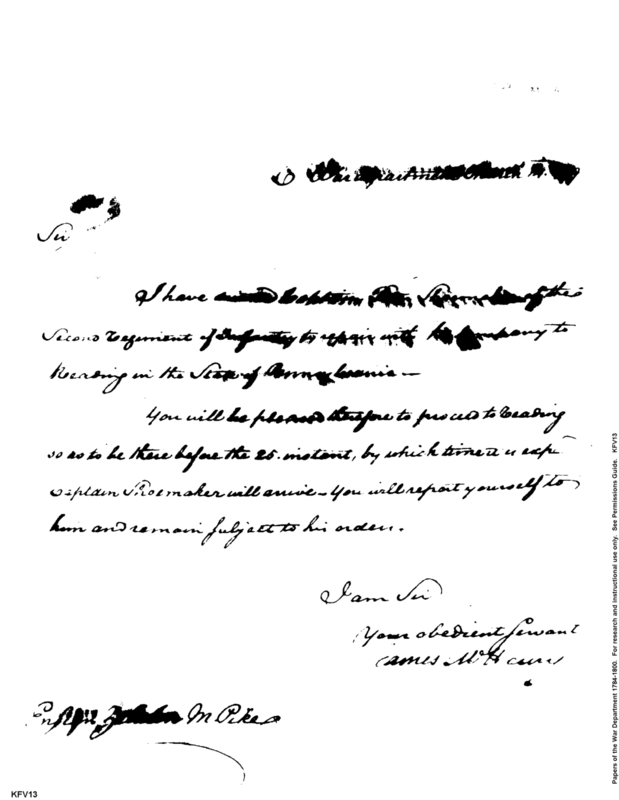 War Department March
Sir
I have Captain of the
Second Regiment of Infantry to repair with his Company to
Reading in the State of Pennsylvania —
You will be pleased therefore to proceed to Reading
so as to be there before the 25. instant, by which time it is exp
Captain Shoemaker will arrive – You will report yourself to
him and remain subject to his orders.
I am Sir
Your obedient Servant
James McHenry
Ensign M Pike
KFV13
Papers of the War Department 1784-1800. For research and instructional use only. See Permissions Guide. KFV13